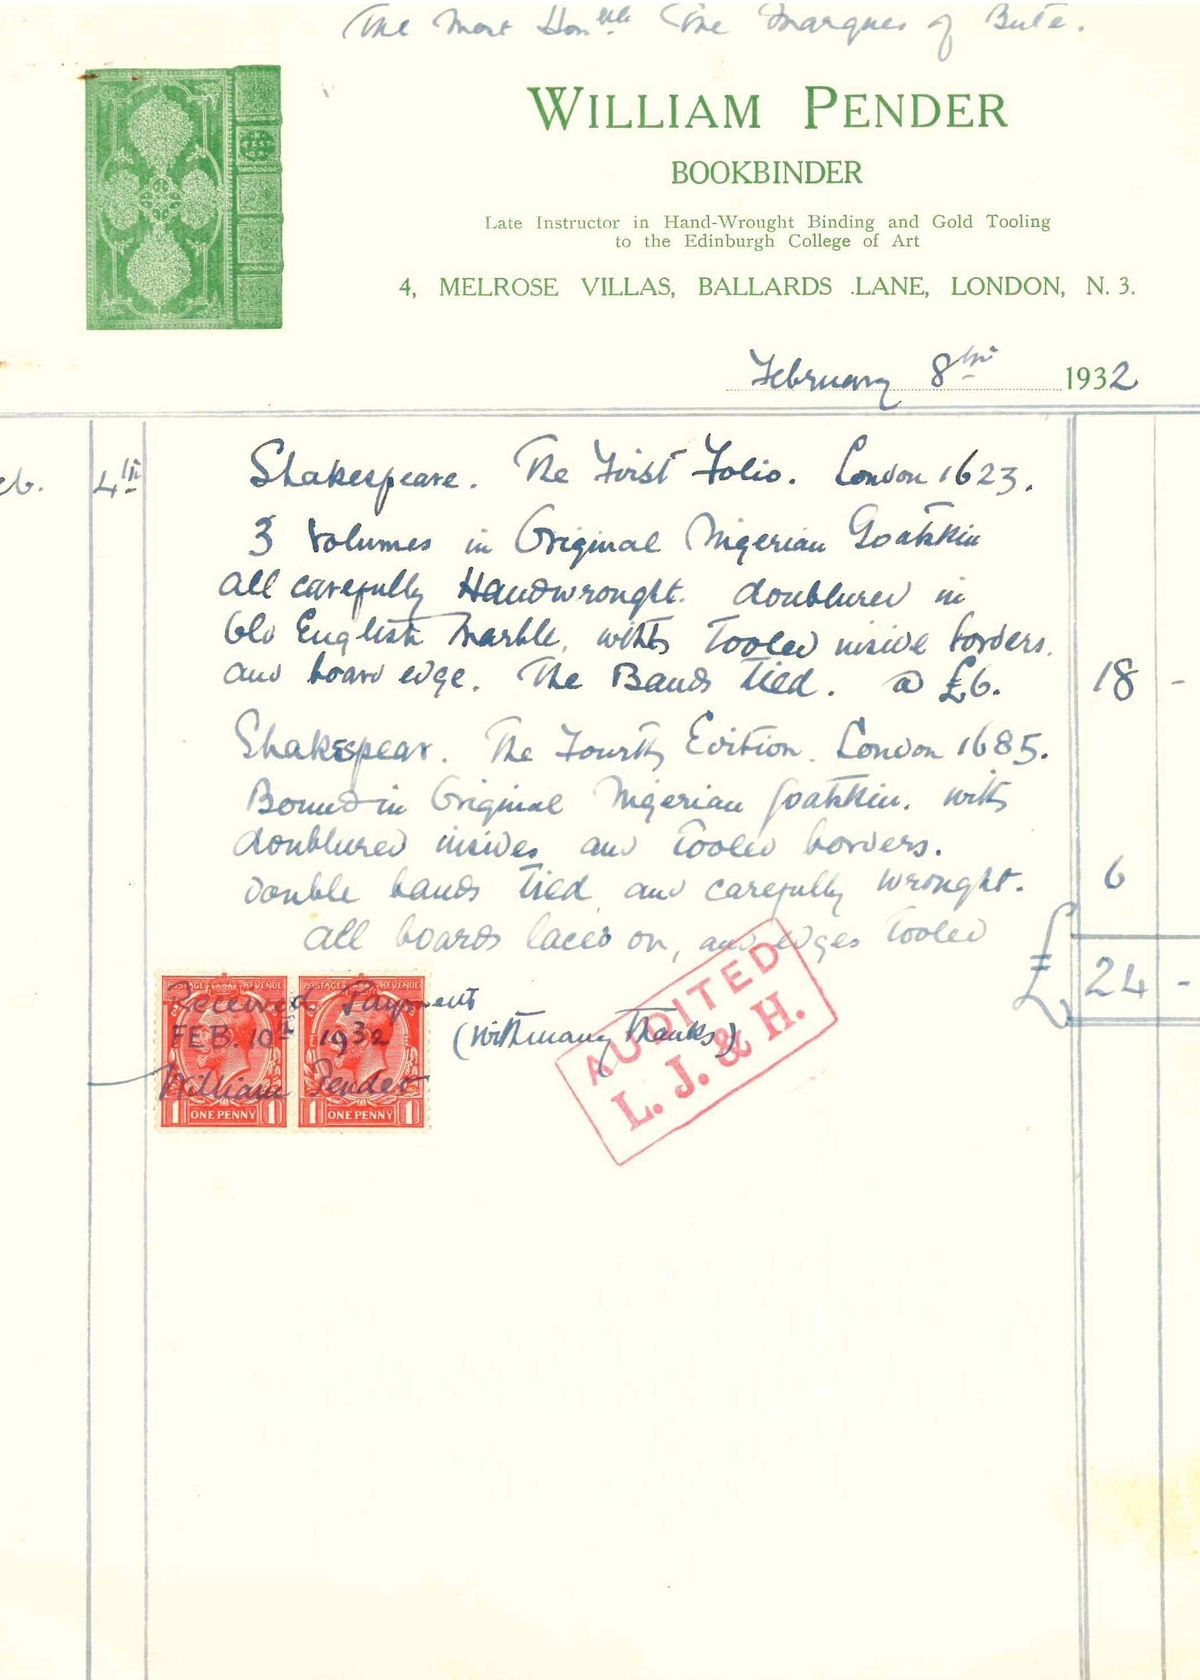 The Most Hon^ble The Marques of Bute.
WILLIAM PENDER
BOOKBINDER
Late Instructor in Hand-Wrought Binding and Gold Tooling
to the Edinburgh College of Art
4, MELROSE VILLAS, BALLARDS LANE, LONDON, N. 3.
February 8th 1932
eb. 4th Shakespeare. The First Folio. London 1623.
3 Volumes in Original Nigerian Goatskin
all carefully Handwrought. doublured in
Old English Marble, with Tooled inside borders.
and board edge. The Bands Tied. @ £6. 18 -
Shakespear. The Fourth Edition. London 1685.
Bound in Original Nigerian Goatskin. with
doublured insides and Tooled borders.
Double bands Tied and carefully wrought. 6
All boards laced on, and edges Tooled
£ 24 -
POSTAGE REVENUE POSTAGE REVENUE
Received Payment
FEB. 10th 1932 (With many Thanks)
William Pender
1 ONE PENNY 1 1 ONE PENNY 1
AUDITED
L. J. & H.